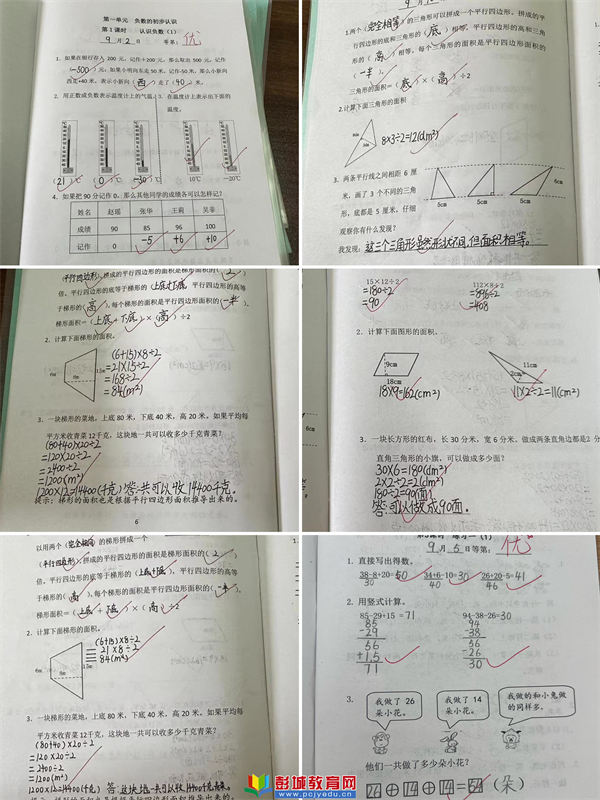 第一单元 负数的初步认识
第1课时 认识负数（1）
9月2日 等第：优
1. 如果在银行存入 200 元，记作+200 元，那么取出 500 元，记作
（-500）元；如果小明向东走 50 米，记作-50 米，那么小新向
西走+40 米，表示小新向（西）走了（40）米。
2. 用正数或负数表示温度计上的气温。
3. 在温度计上表示出下面的
温度。
（21）℃ （0）℃ （-30）℃ 10℃ -20℃
4. 如果把 90 分记作 0，那么其他同学的成绩各可以怎样记？
姓名 赵瑶 张华 王莉 吴菲
成绩 90 85 96 100
记作 0 -5 +6 +10
1.两个（完全相等）的三角形可以拼成一个平行四边形，拼成的平
行四边形的底和三角形的（底）相等，平行四边形的高和三角
形的（高）相等，每个三角形的面积是平行四边形面积的
（一半）。
三角形的面积=（底）×（高）÷2
2.计算下面三角形的面积
8×3÷2=12(dm²)
3. 两条平行线之间相距 6 厘
米，画了 3 个不同的三角
形，底都是 5 厘米，仔细
观察你有什么发现？
6cm
5cm 5cm 5cm
我发现：这三个三角形虽然形状不同,但面积相等。
（平行四边形），拼成的平行四边形的面积是梯形面积的（2）
倍，平行四边形的底等于梯形的（上底+下底），平行四边形的高等
于梯形的（高），每个梯形的面积是平行四边形面积的（一半），
梯形面积=（上底+下底）×（高）÷2
2. 计算下面梯形的面积。
6m 8m 15m
(6+15)×8÷2
=21×15÷2
=168÷2
=84(m²)
3. 一块梯形的菜地，上底 80 米，下底 40 米，高 20 米。如果平均每
平方米收青菜 12千克，这块地一共可以收多少千克青菜？
(80+40)×20÷2
=120×20÷2
=2400÷2
=1200(m²)
1200×12=14400(千克) 答:共可以收14400千克。
提示：梯形的面积也是根据平行四边形面积推导出来的。
6
15×12÷2
=180÷2
=90
112×8÷2
=896÷2
=408
2. 计算下面图形的面积。
9cm
18cm
11cm
2cm
18×9=162(cm²)
11×2÷2=11(cm²)
3. 一块长方形的红布，长 30 分米，宽 6 分米。做成两条直角边都是2分
直角三角形的小旗，可以做成多少面？
30×6=180(dm²)
2×2÷2=2(dm²)
180÷2=90(面)
答:可以做成90面。
以用两个（完全相等）的梯形拼成一个
（平行四边形），拼成的平行四边形的面积是梯形面积的（2）
倍，平行四边形的底等于梯形的（上底+下底），平行四边形的高等
于梯形的（高），每个梯形的面积是平行四边形面积的（一半），
梯形面积=（上底+下底）×（高）÷2
2. 计算下面梯形的面积。
6m 8m 15m
(6+15)×8÷2
=21×8÷2
=84(m²)
3. 一块梯形的菜地，上底 80 米，下底 40 米，高 20 米。如果平均每
平方米收青菜 12千克，这块地一共可以收多少千克青菜？
(80+40)×20÷2
=120×20÷2
=2400÷2
=1200(m²)
1200×12=14400(千克) 答:这块地一共可以收14400千克青菜。
9月5日等第：优
1. 直接写出得数。
38-8+20=50 34+6-10=30 26+20-5=41
30 40 46
2. 用竖式计算。
85-29+15=71 94-38-26=30
85 94
-29 -38
56 56
+15 -26
71 30
3.
我做了 26
朵小花。
我做了 14
朵小花。
我做的和小兔做
的同样多。
他们一共做了多少朵小花？
26+14+14=54（朵）
彭城教育网
www.pcjyedu.cn